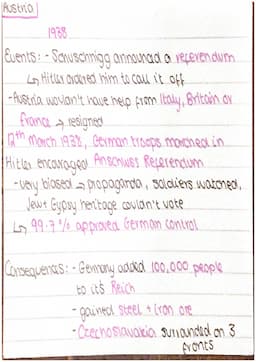 Austria
1938
Events: - Schuschnigg announced a referendum
↳ Hitler ordered him to call it off
- Austria wouldn't have help from Italy, Britain or
France → resigned
12th March 1938, German troops marched in
Hitler encouraged Anschluss Referendum
- very biased → propaganda, soldiers watched,
Jew + Gypsy heritage couldn't vote
↳ 99.7% approved German control
Consequences: - Germany added 100,000 people
to it's Reich
- gained steel + iron ore
- Czechoslavakia surrounded on 3
fronts